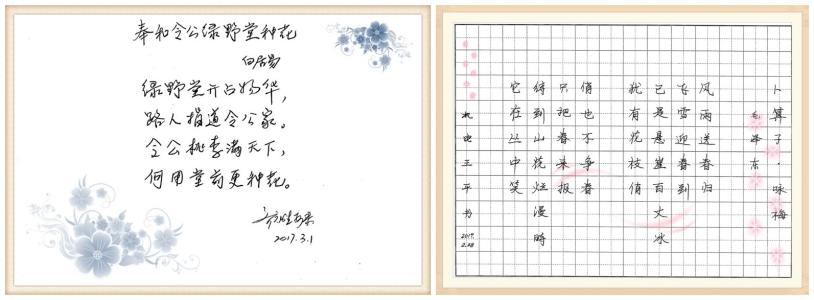 奉和令公绿野堂种花
白居易
绿野堂开占物华，
路人指道令公家。
令公桃李满天下，
何用堂前更种花。
2017.3.1
卜算子·咏梅
毛泽东
风雨送春归
飞雪迎春到
已是悬崖百丈冰
犹有花枝俏
俏也不争春
只把春来报
待到山花烂漫时
它在丛中笑
机电王平书
2017.
2.28